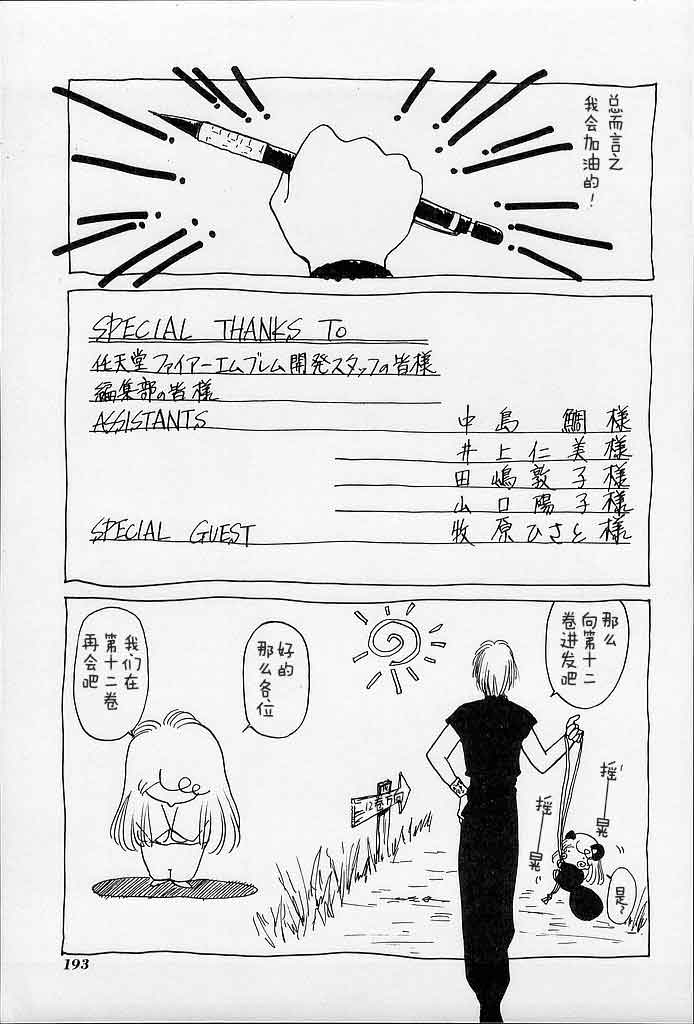 总而言之
我会加油的！
SPECIAL THANKS TO
任天堂ファイアーエムブレム開発スタッフの皆様
編集部の皆様
ASSISTANTS
中島 鯛様
井上仁美様
田嶋敦子様
山口陽子様
SPECIAL GUEST
牧原ひさと様
那么
向第十二
卷进发吧
好的
那么各位
我们在
第十二卷
再会吧
12巻方向
摇
晃
摇
晃
是~
193